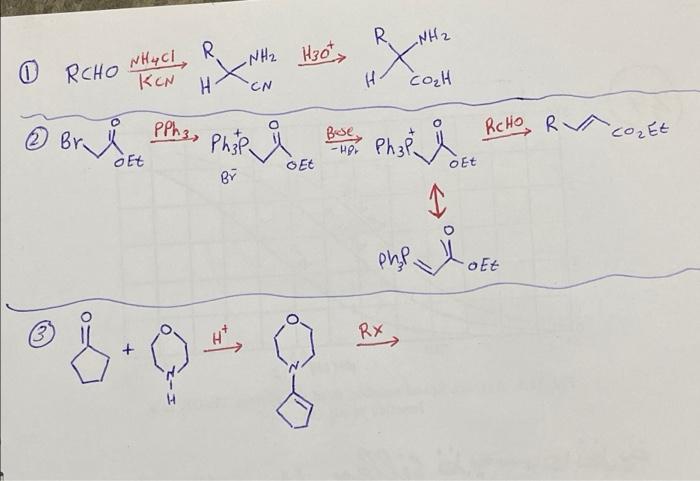 ① RCHO NH4Cl KCN R H NH2 CN H3O+ R H NH2 CO2H
② Br O OEt PPh3 Ph3P+ Br- O OEt Base -HBr Ph3P+ O OEt RCHO R CO2Et
Ph3P O OEt
③ O + O N H H+ O N Rx